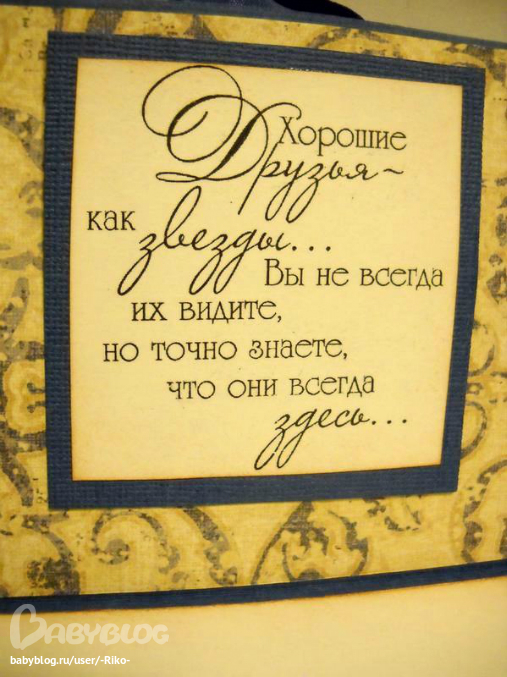 Хорошие
Друзья~
как звезды...
Вы не всегда
их видите,
но точно знаете,
что они всегда
здесь...
BABYBLOG
babyblog.ru/user/-Riko-